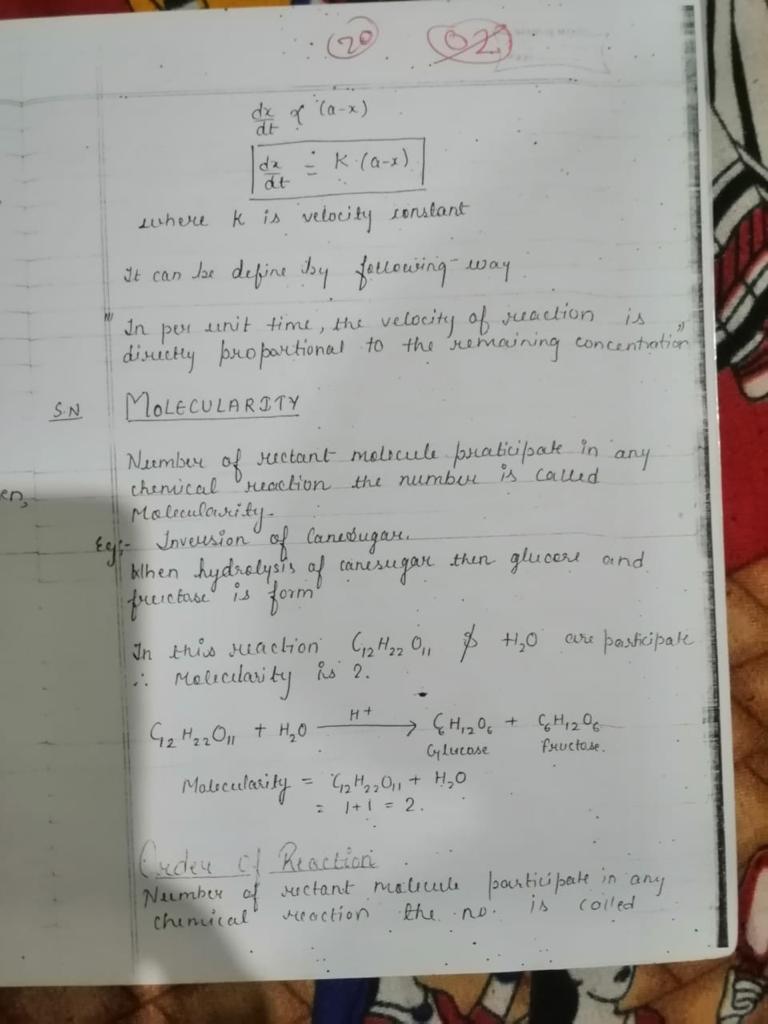 20 02
dx/dt ∝ (a-x)
dx/dt = K·(a-x)
where k is velocity constant
It can be define by following way
"In per unit time, the velocity of reaction is
directly propartional to the remaining concentration"
S.N MOLECULARITY
Number of rectant molecule praticipate in any
chemical reaction the number is called
Molecularity.
Eg:- Inversion of Canesugar.
When hydrolysis of canesugar then glucose and
fructose is form
In this reaction C12H22O11 & H2O are participate
∴ Molecularity is 2.
C12H22O11 + H2O —H+→ C6H12O6 + C6H12O6
Glucose Fructose.
Molecularity = C12H22O11 + H2O
= 1+1 = 2.
Order of Reaction
Number of rectant molecule participate in any
chemical reaction the no. is called